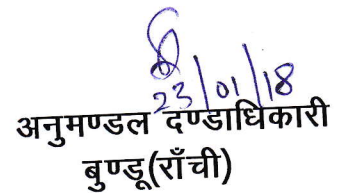 23/01/18
अनुमण्डल दण्डाधिकारी
बुण्डू(राँची)